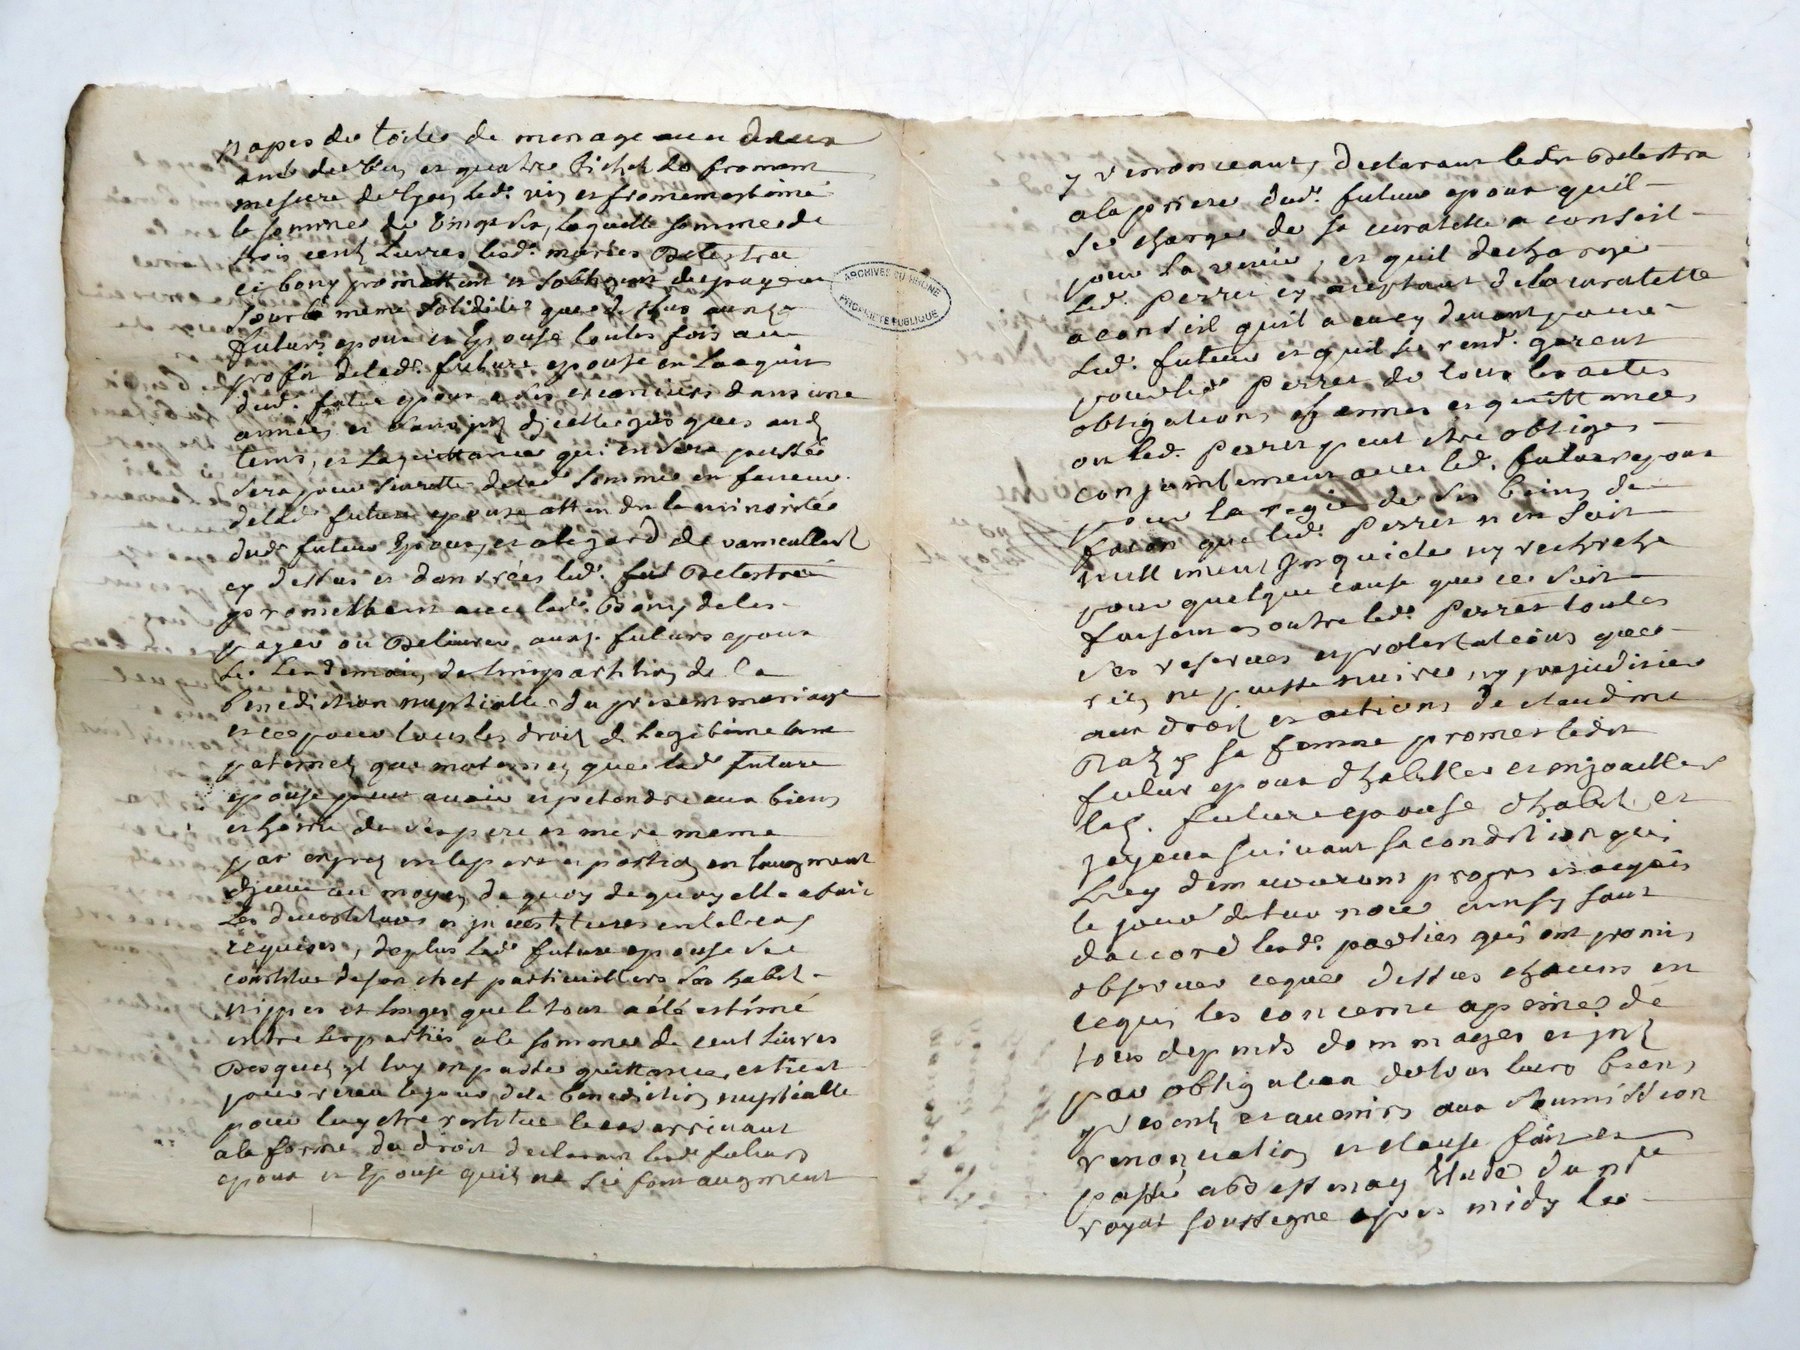 napes de toiles de menage avec deux
ané de vin et quatre Bichet de froment
mesure de lyon led. vin et froment estimé
la somme de vingt six, laquelle somme de
trois cent Livres lesd. mariés Delestra
et bony promettent et sobligent de payer
sous la meme solidité que dessus auxd.
futurs epoux et Epouse toutes fois au
profit delad. future epouse en Lacquit
dud. futur epoux a dix en dans une
année et sans jusques aud.
tems, et la quittance qui en sera passée
sera pour seurette delad. somme en faveur
delad. future epouse attendu la minorité
dud. futur Epoux, et a legard de
cy dessus et danrées led. Delestra
promettent avec lad. Bony de les
payer ou Delivrer auxd. futurs epoux
Le Lendemain de limpartition de la
benediction nuptialle du present mariage
et ce pour tous les droits de Legitime tant
paternels que maternels que lad. future
epouse peut avoir et pretendre aux biens
et hoirie de ses pere et mere meme
par exprès en la part et portion en laugment
diceux au moyen de quoy de quoy elle a fait
Les devestitures et investitures en tel cas
requises, de plus lad. future epouse se
constitue de son chef particulliers ses habits
nippes et linges que le tout a été estimé
entre les parties a la somme de cent Livres
Desquels il luy en passe quittance, et tient
pour receu le jour de la benediction nuptialle
pour luy etre restitue le cas arrivant
a la forme du droit declarant lesd. futurs
epoux et Epouse quils ne se font augment
ARCHIVES DU RHÔNE
PROPRIÉTÉ PUBLIQUE
y renonceant, declarant ledit Delestra
a la priere dud. futur epoux quil
se charge de sa curatelle a conseil
pour la venir, et quil decharge
led. Perret cy acceptant de la curatelle
a conseil quil a eu cy devant pour
led. futur et quil se rend. garent
pour led. Perret de tous les actes
obligations et quittances
ou led. Perret peut etre obliger
conjointement avec led. futur epoux
pour la regie de ses biens de
facon que led. Perret n'en soit
null ment Inquieté ny recherché
pour quelque cause que ce soit
faisant outre led. Perret toutes
ses reserves et protestations que
rien ne puisse nuire, ny prejudicier
aux droits et actions de claudine
sa femme promet ledit
futur epoux dhabiller et enjoailler
lad. future epouse dhabits et
joyaux suivant sa condition qui
Luy demeureront propres et acquis
le jour de leur noce ainsy sont
daccord lesd. parties qui ont promis
observer ceque dessus chacuns en
cequi les concerne a peine de
tous depends dommages et jnts
par obligation de tous leurs biens
presents et avenirs aux soumission
renonciation et clause fait et
passé Etude du nre
royal soussigné apres midy le